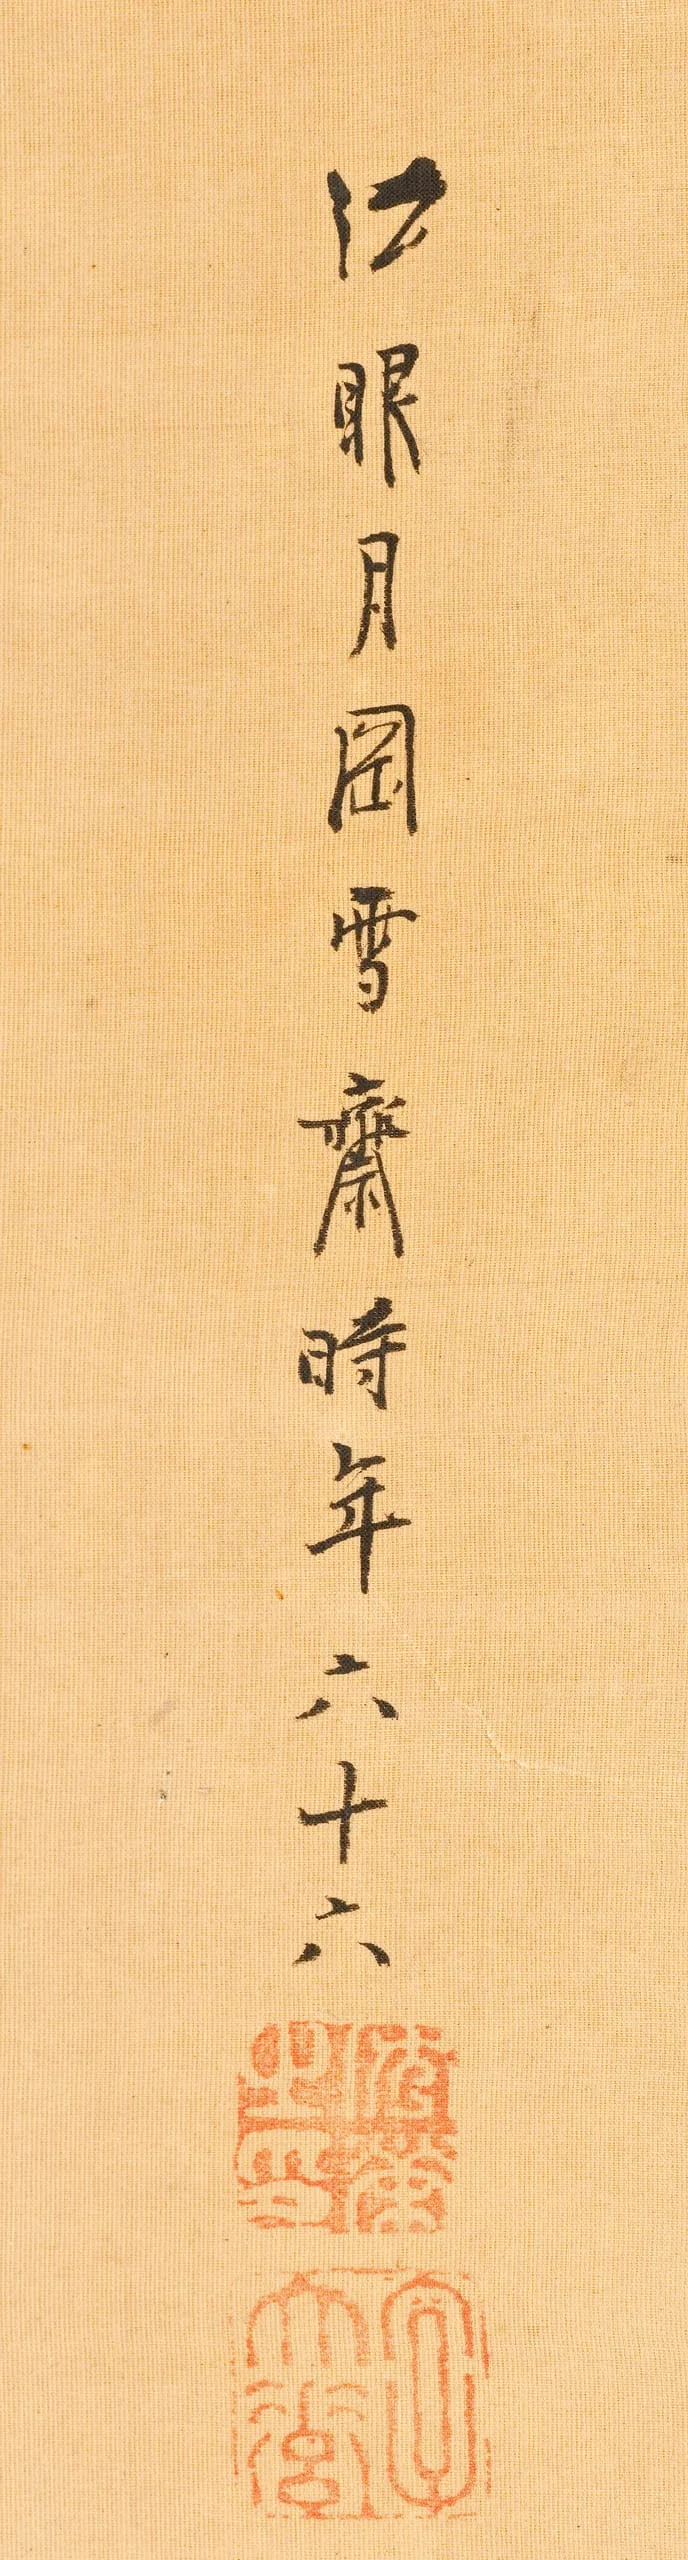 江眼月岡雪齋時年六十六